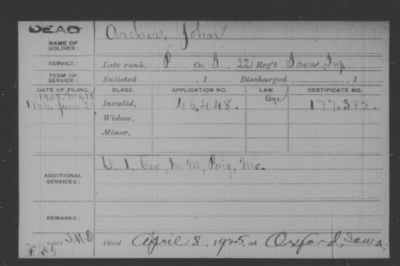 DEAD
NAME OF SOLDIER: Archer, John
SERVICE: Late rank, P Co. I, 22 Reg't Iowa Inf
TERM OF SERVICE: Enlisted , 1 Discharged , 1
DATE OF FILING. CLASS. APPLICATION NO. LAW. CERTIFICATE NO.
Invalid, 46,448. Age 177.385.
Widow.
Minor.
ADDITIONAL SERVICES:
REMARKS:
Died April 8, 1925, at Oxford, Iowa